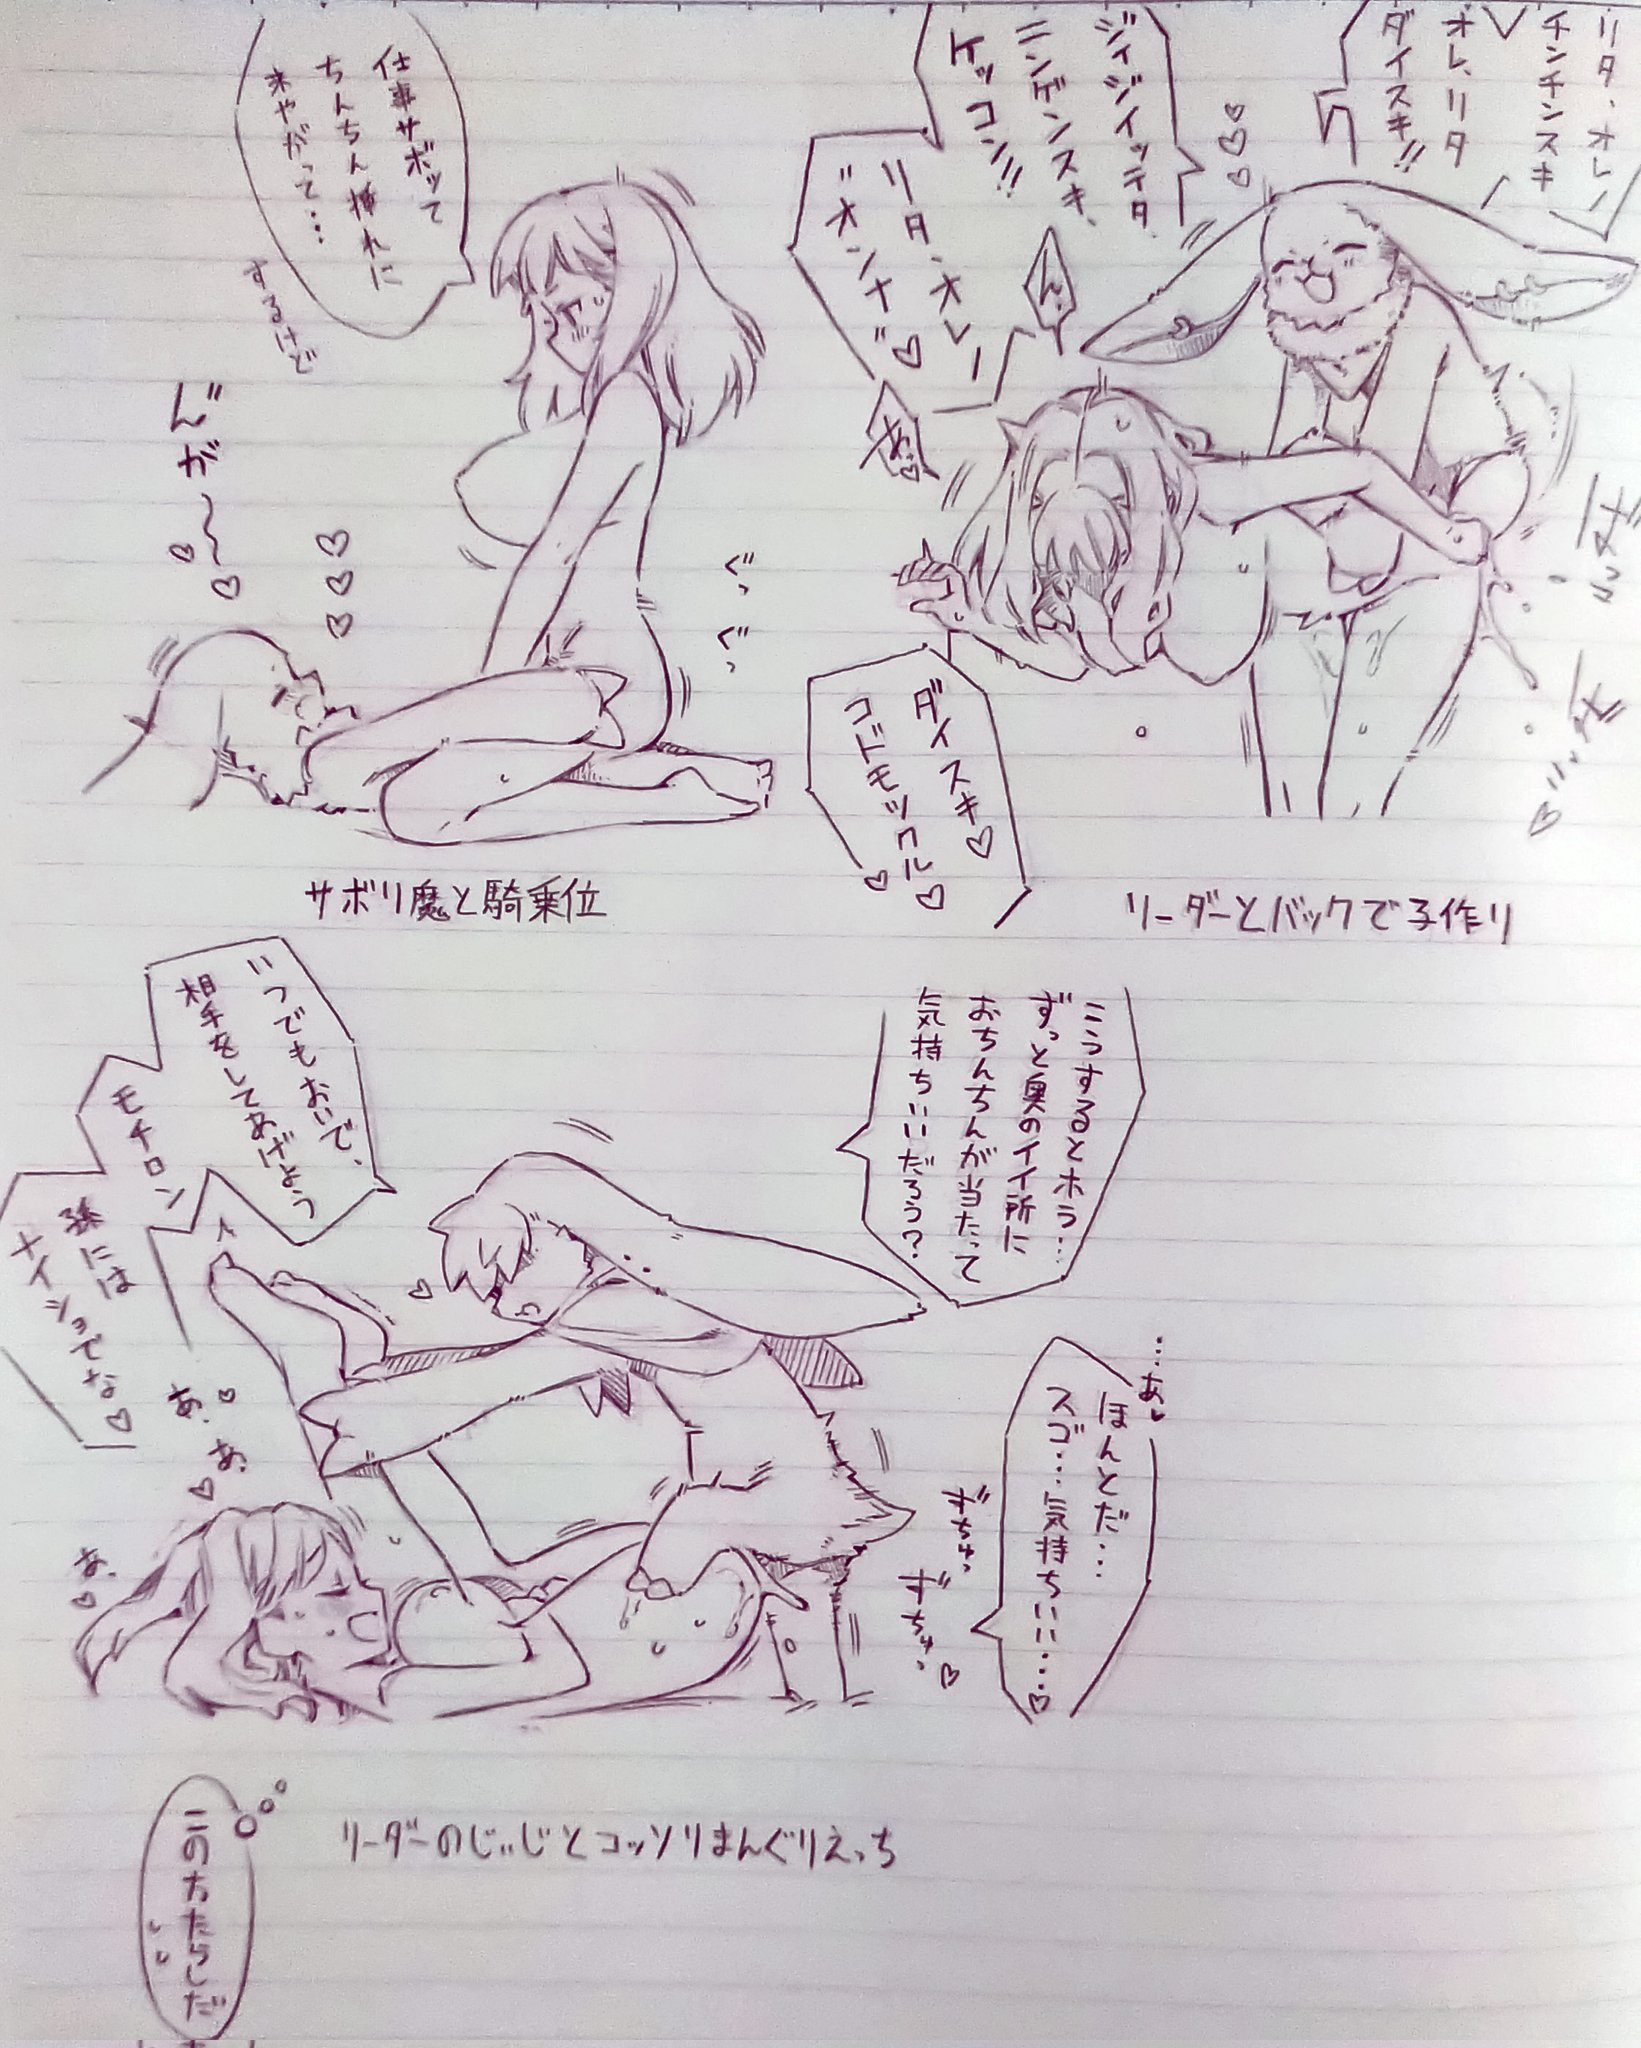 リタ、オレノ
チンチンスキ
オレ、リタ
ダイスキ!!
ジイジイッテタ
ニンゲンスキ、
ケッコン!!
リタ、オレノ
"オンナ"♡
ん、
あっ♡
ダイスキ♡
コドモツクル♡♡
リーダーとバックで子作り
仕事サボッて
ちんちん挿れに
来やがって…
するけど
んが〜〜♡♡
♡♡♡
ぐっ ぐっ
サボリ魔と騎乗位
こうするとホラ…
ずっと奥のイイ所に
おちんちんが当たって
気持ちいいだろう?
…あ♡
ほんとだ…
スゴ…気持ちいい…♡
いつでもおいで、
相手をしてあげよう
モチロン
孫には
ナイショでな♡
あ、♡
あ、♡
あ、♡
ぎちゅっ
ぎちゅっ♡
リーダーのじいじとコッソリまんぐりえっち
この方たらしだ